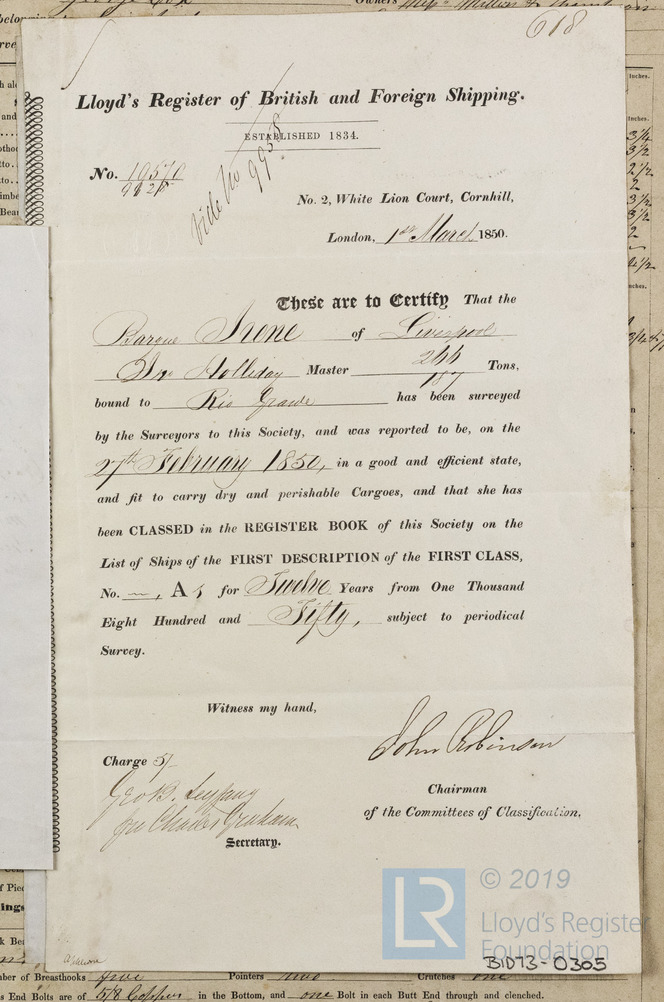 618
Lloyd's Register of British and Foreign Shipping.
ESTABLISHED 1834.
No. 10570
vide No 9958
No. 2, White Lion Court, Cornhill,
London, 1st March 1850.
These are to Certify That the
Barque Irene of Liverpool
Holliday Master 266 Tons,
187
bound to Rio Grande has been surveyed
by the Surveyors to this Society, and was reported to be, on the
27th February 1850, in a good and efficient state,
and fit to carry dry and perishable Cargoes, and that she has
been CLASSED in the REGISTER BOOK of this Society on the
List of Ships of the FIRST DESCRIPTION of the FIRST CLASS,
No. —, A 1 for Twelve Years from One Thousand
Eight Hundred and Fifty, subject to periodical
Survey.
Witness my hand,
John Robinson
Charge 5/-
Chairman
of the Committees of Classification.
Geo. B. Seyfang
for Charles Graham
Secretary.
© 2019
Lloyd's Register
Foundation
BID73-0305
Breasthooks five Pointers two Crutches one
End Bolts are of 5/8 Copper in the Bottom, and one Bolt in each Butt End through and clenched.